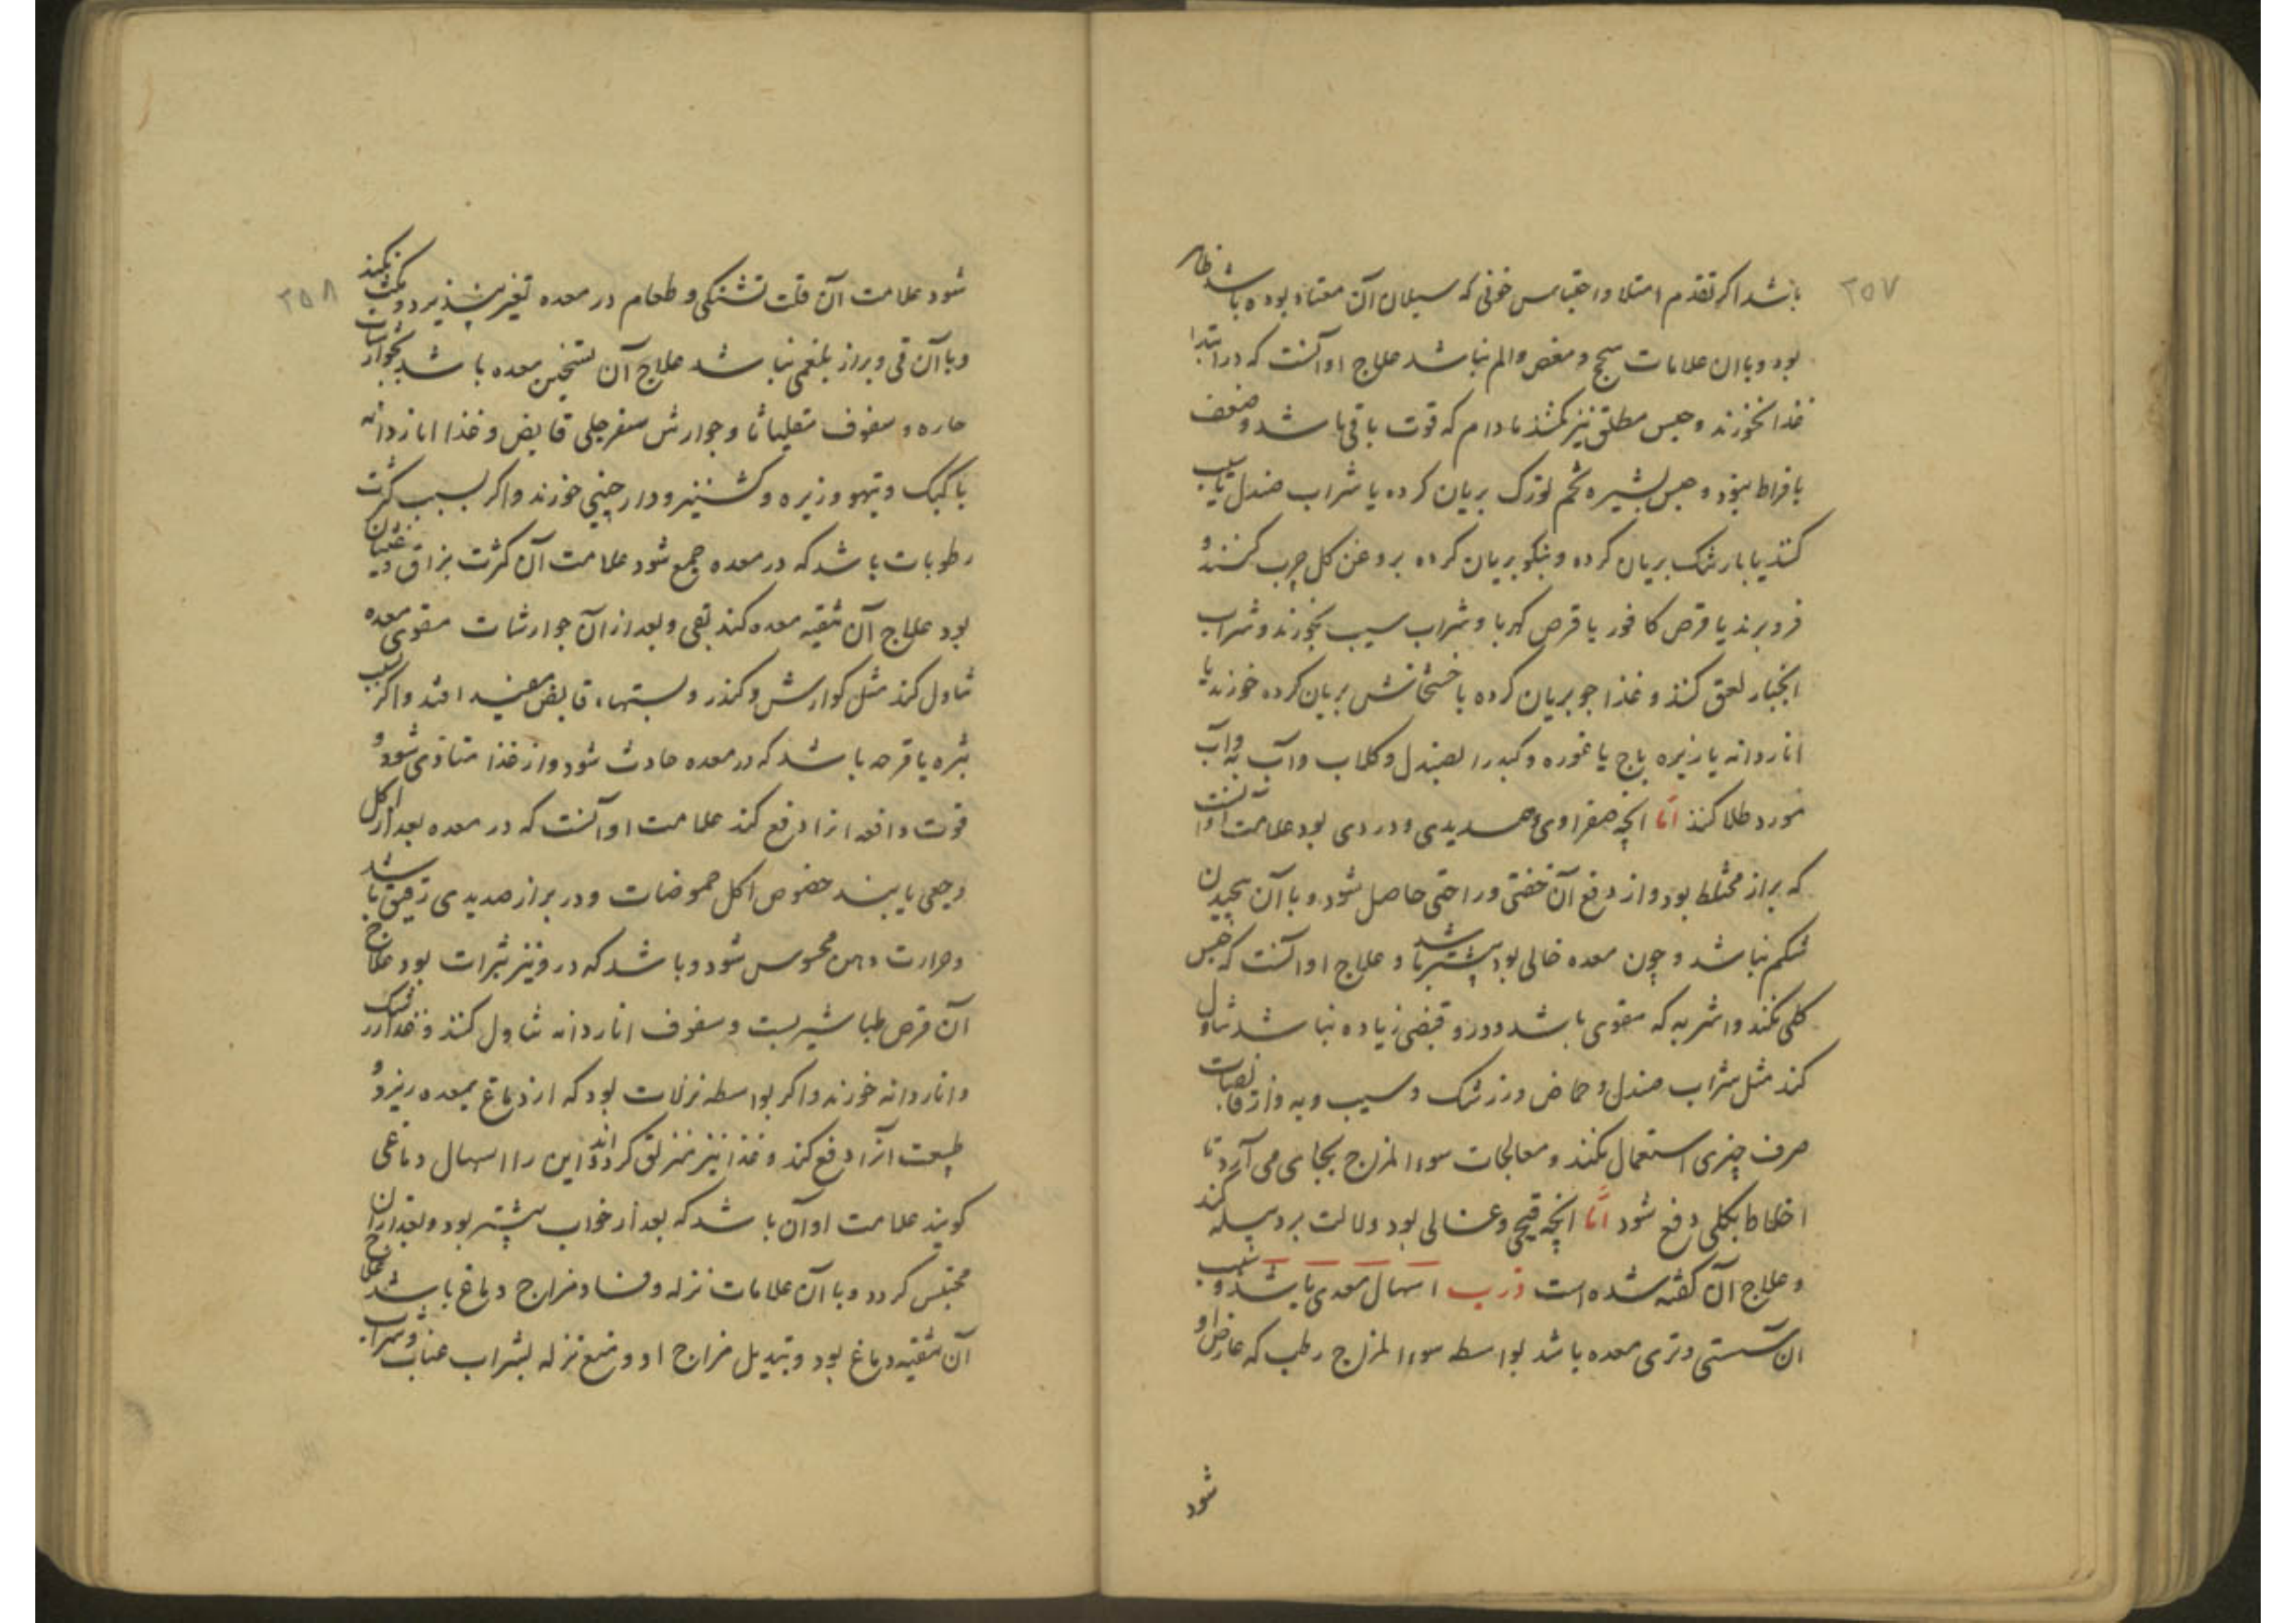 ۲۵۷
باشد اکر تقدم امتلا و احتباس خونی که سیلان آن معتاد بوده باشد ظاهر
بود و با ان علامات سحج و مغص و الم نباشد علاج او آنست که در ابتدا
غذا نخورند و حبس مطلق نیز نکنند مادام که قوت باقی باشد و ضعف
بافراط نبود و حبس بشیره تخم تورک بریان کرده با شراب صندل یا سیب
کنند یا بارتنک بریان کرده و بنکو بریان کرده بروغن کل چرب کنند و
فرو برند یا قرص کافور یا قرص کهربا و شراب سیب بخورند و شراب
انجبار لعق کنند و غذا جو بریان کرده با خشخاش بریان کرده خورند یا
اناردانه یا زیره باج یا غوره و کبد را بصندل و کلاب و آب به و آب
مورد طلا کنند امّا انچه صفراوی و صدیدی و دردی بود علامت او آنست
که براز مختلط بود و از دفع آن خفتی و راحتی حاصل شود و با آن پیچیدن
شکم نباشد و چون معده خالی بود بیشتر باشد و علاج او آنست که حبس
کلی نکنند و اشربه که مقوی باشد و درو قبضی زیاده نباشد تناول
کند مثل شراب صندل و حماض و زرشک و سیب و به و از قابضات
صرف چیزی استعمال نکنند و معالجات سوء المزاج بجای می آرد تا
اخلاط بکلی دفع شود امّا انچه قیحی و غسالی بود دلالت بر دبیله کند
و علاج آن کفته شده است ذرب اسهال معدی باشد و سبب
ان سستی و تری معده باشد بواسطه سوء المزاج رطب که عارض او
شود
۲۵۸
شود علامت آن قلت تشنکی و طعام در معده تغیر نپذیرد و مکث نکند
و با آن قی و براز بلغمی نباشد علاج آن تسخین معده باشد بجوارشات
حاره و سفوف مقلیاثا و جوارش سفرجلی قابض و غذا اناردانه
با کبک و تیهو و زیره و کشنیز و دارچینی خورند و اکر بسبب کثرت
رطوبات باشد که در معده جمع شود علامت آن کثرت بزاق و غثیان
بود علاج آن تنقیه معده کند بقی و بعد از آن جوارشات مقوی معده
تناول کند مثل کوارش و کندر و بستهاء قابض مفید افتد و اکر بسبب
بثره یا قرحه باشد که در معده حادث شود و از غذا متاذی شود و
قوت دافعه انرا دفع کند علامت او آنست که در معده بعد از اکل
وجعی یابند خصوص اکل حموضات و در براز صدیدی رقیق باشد
و حرارت دهن محسوس شود و باشد که درو نیز بثرات بود علاج
آن قرص طباشیرست و سفوف اناردانه تناول کنند و غذا زرشک
و اناردانه خورند و اکر بواسطه نزلات بود که از دماغ بمعده ریزد و
طبیعت آنرا دفع کند و غذا نیز منزلق کرداند و این را اسهال دماغی
کویند علامت او آن باشد که بعد از خواب بیشتر بود و بعد از ان
محتبس کردد و با آن علامات نزله و فساد مزاج دماغ باشد علاج
آن تنقیه دماغ بود و تبدیل مزاج او و منع نزله بشراب عناب و شراب